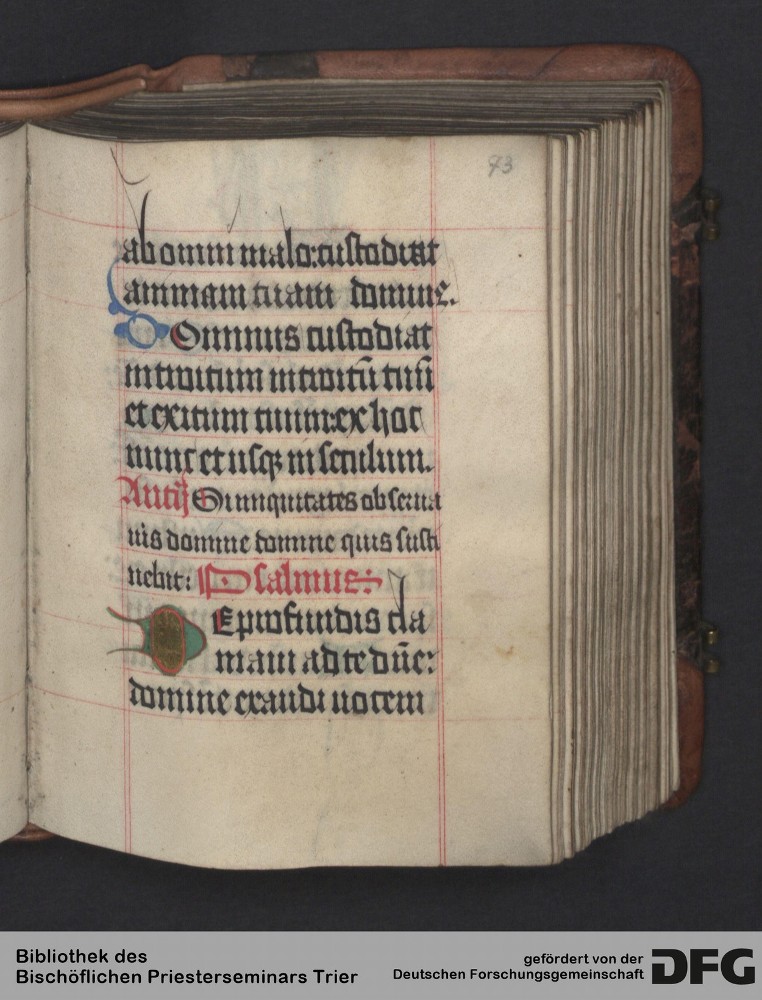 93
ab omni malo: custodiat
animam tuam domine.
Dominus custodiat
introitum introitū tuū
et exitum tuum: ex hoc
nunc et usqꝫ in seculum.
Antiꝭ Si iniquitates obserua
uis domine domine quis susti
nebit: Psalmus:
De profundis cla
maui ad te dn̄e:
domine exaudi uocem
Bibliothek des
Bischöflichen Priesterseminars Trier
gefördert von der
Deutschen Forschungsgemeinschaft
DFG